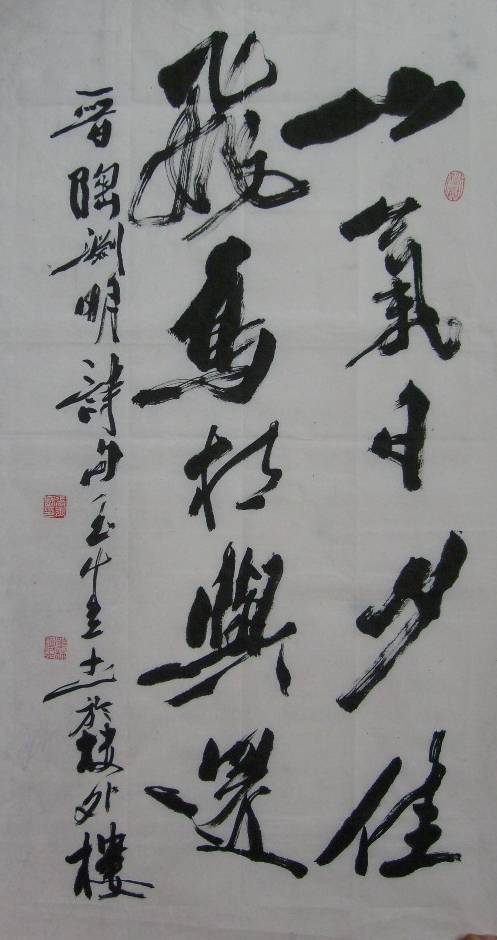 山氣日夕佳
飛鳥相與還
晋陶渊明詩句於楼外樓